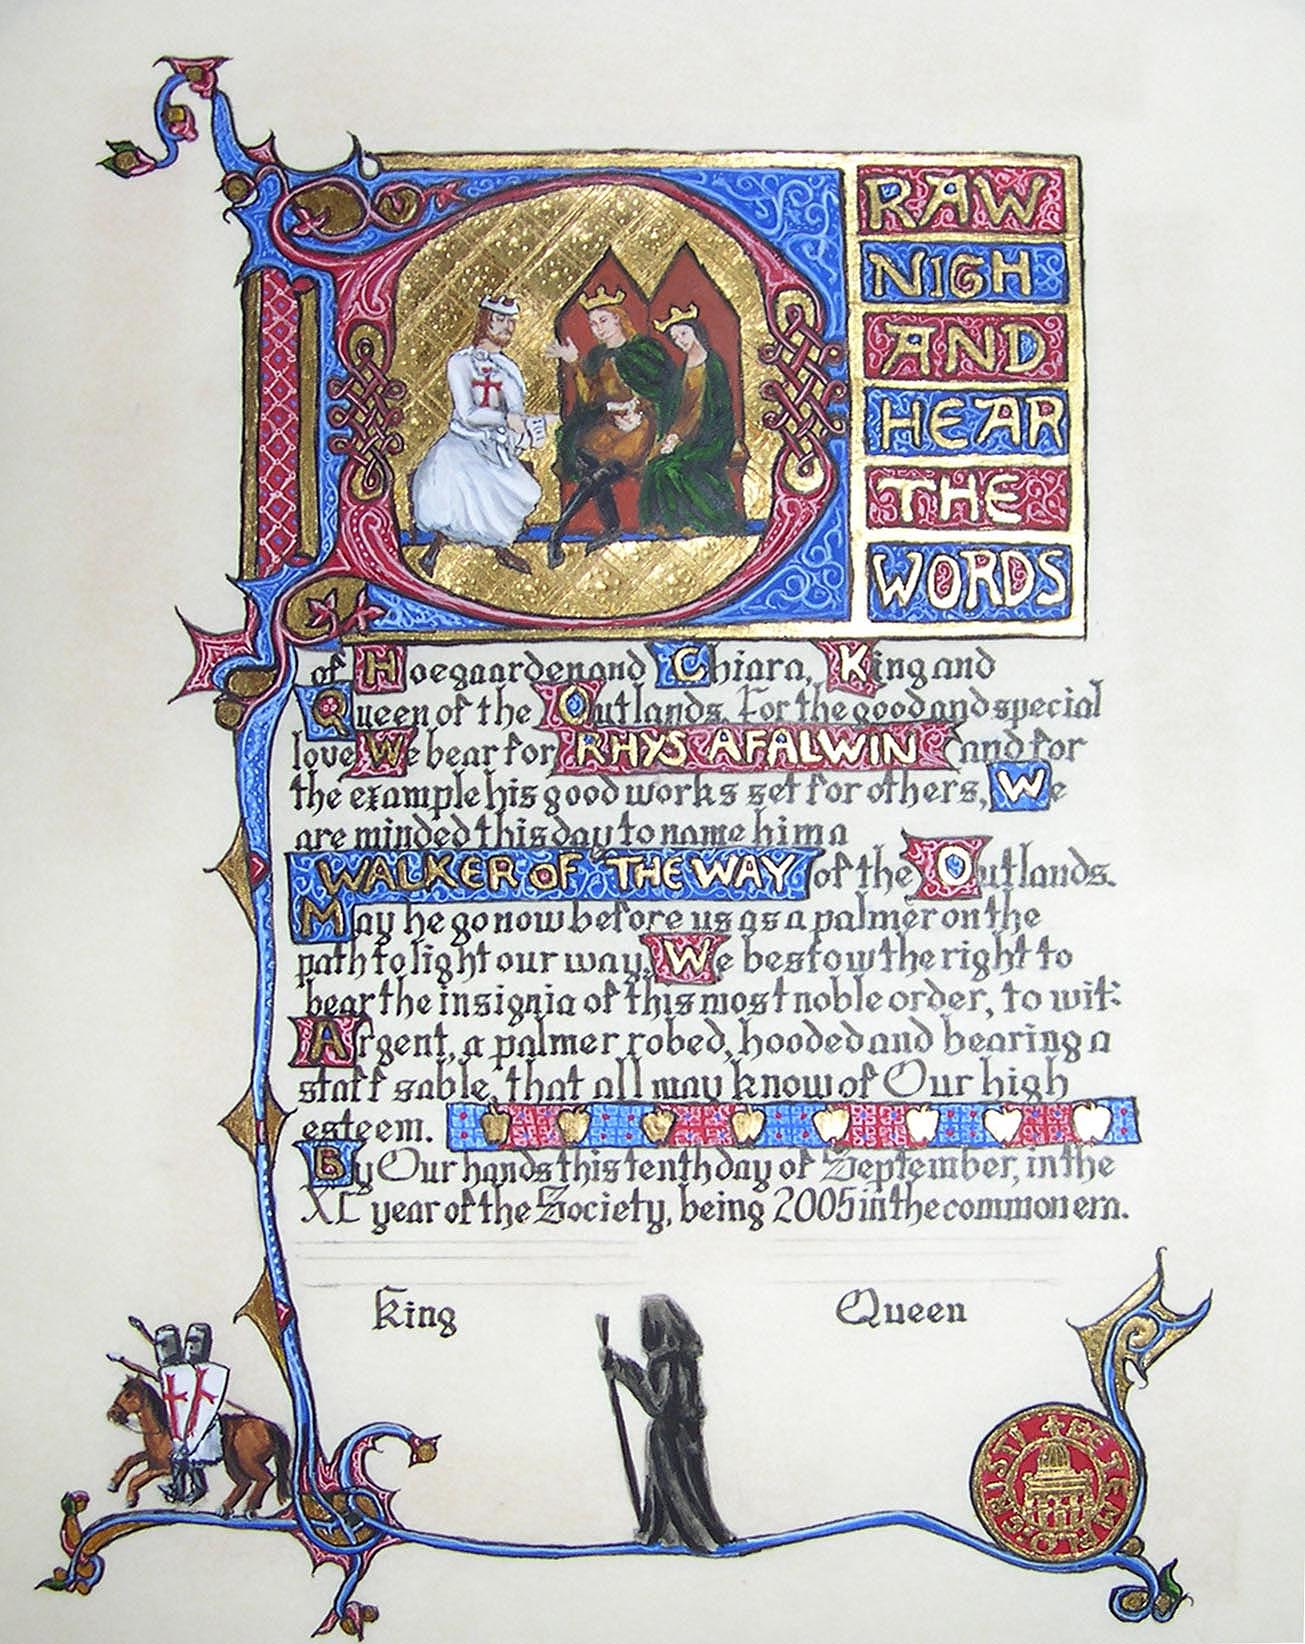 D
RAW
NIGH
AND
HEAR
THE
WORDS
of Hoegaarden and Chiara, King and
Queen of the Outlands. For the good and special
love We bear for RHYS AFALWIN and for
the example his good works set for others, We
are minded this day to name him a
WALKER OF THE WAY of the Outlands.
May he go now before us as a palmer on the
path to light our way. We bestow the right to
bear the insignia of this most noble order, to wit:
Argent, a palmer robed, hooded and bearing a
staff sable, that all may know of Our high
esteem.
By Our hands this tenth day of September, in the
XL year of the Society, being 2005 in the common era.
King
Queen